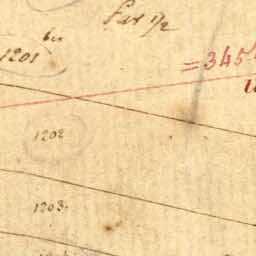 Par 1/2
bis
1201
=345
1202
1203.